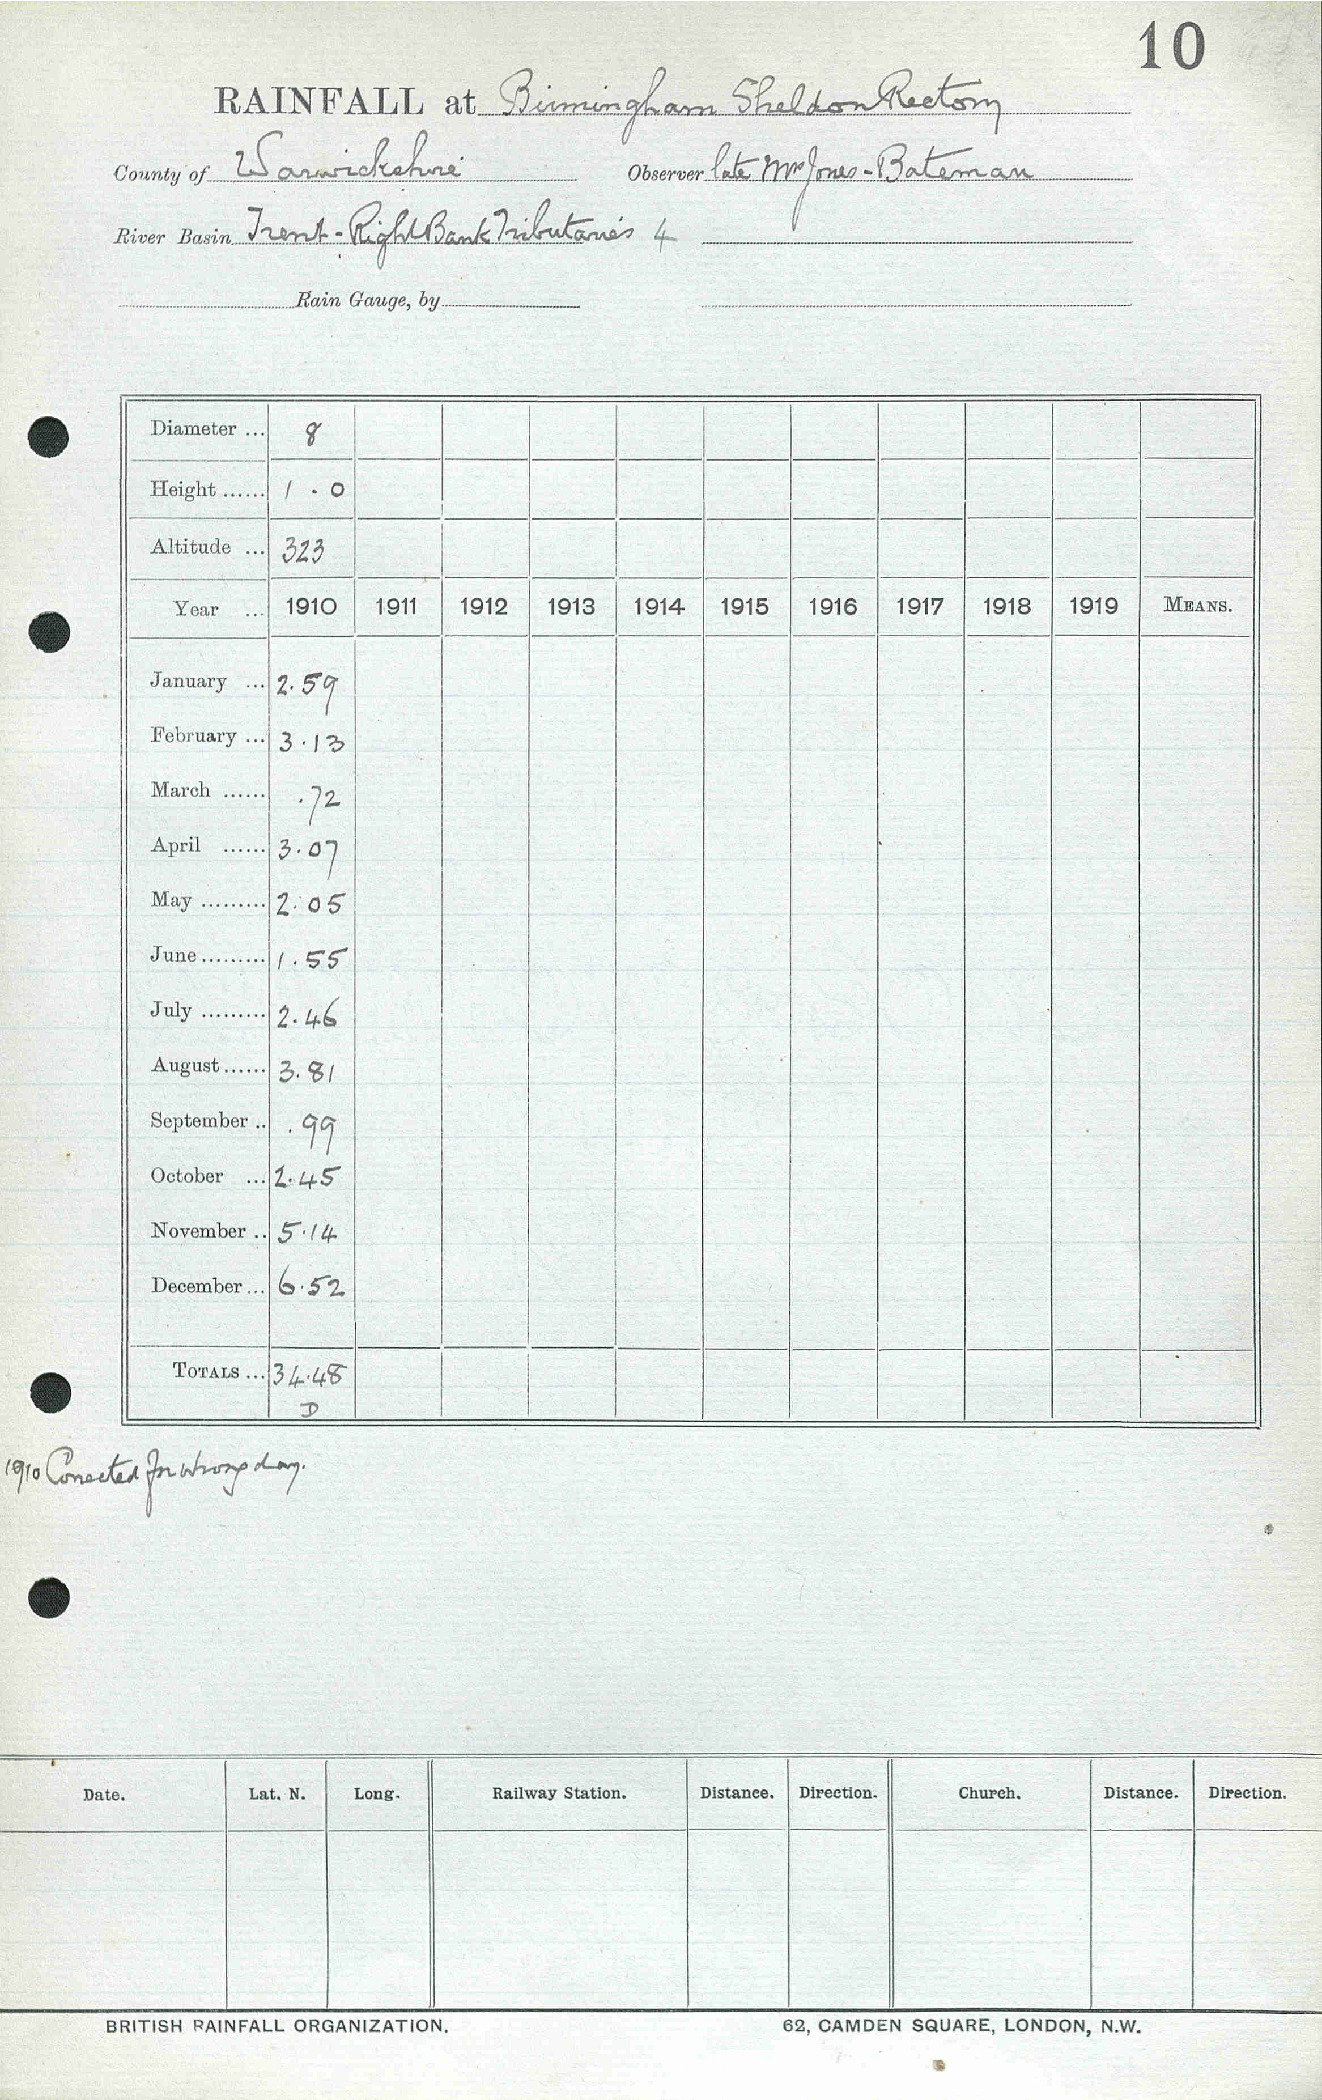 10
RAINFALL at Birmingham Sheldon Rectory
County of Warwickshire Observer late Mrs Jones-Bateman
River Basin Trent - Right Bank Tributaries 4
Rain Gauge, by
Diameter ... 8
Height ...... 1 . 0
Altitude ... 323
Year ... 1910 1911 1912 1913 1914 1915 1916 1917 1918 1919 MEANS.
January ... 2.59
February ... 3.13
March ...... .72
April ...... 3.07
May ......... 2.05
June ......... 1.55
July ......... 2.46
August ...... 3.81
September .. .99
October ... 2.45
November .. 5.14
December ... 6.52
TOTALS ... 34.48
D
1910 Corrected for wrong day.
Date. Lat. N. Long. Railway Station. Distance. Direction. Church. Distance. Direction.
BRITISH RAINFALL ORGANIZATION. 62, CAMDEN SQUARE, LONDON, N.W.